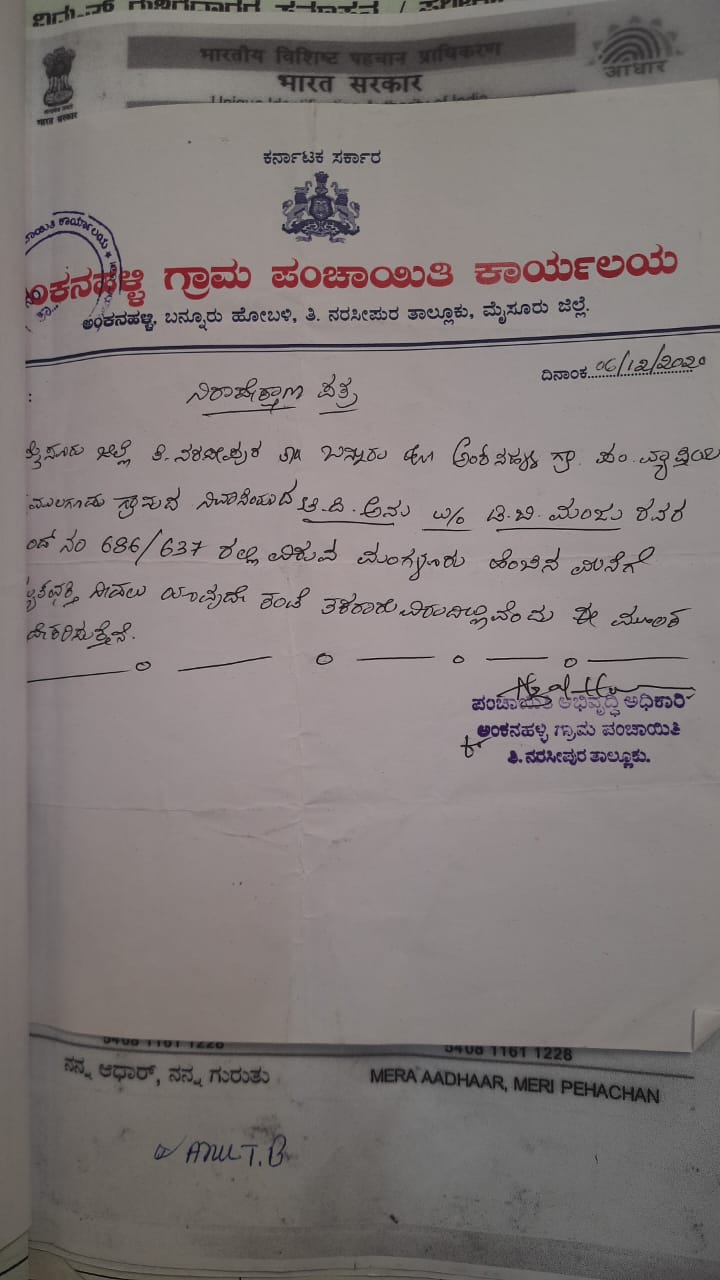 भारतीय विशिष्ट पहचान प्राधिकरण
भारत सरकार
आधार
भारत सरकार
ಕರ್ನಾಟಕ ಸರ್ಕಾರ
ಅಂಕನಹಳ್ಳಿ ಗ್ರಾಮ ಪಂಚಾಯಿತಿ ಕಾರ್ಯಲಯ
ಅಂಕನಹಳ್ಳಿ, ಬನ್ನೂರು ಹೋಬಳಿ, ತಿ. ನರಸೀಪುರ ತಾಲ್ಲೂಕು, ಮೈಸೂರು ಜಿಲ್ಲೆ.
ದಿನಾಂಕ 06/12/2020
ನಿರಾಪೇಕ್ಷಣ ಪತ್ರ
ಮೈಸೂರು ಜಿಲ್ಲೆ ತಿ. ನರಸೀಪುರ ತಾ ಬನ್ನೂರು ಹೋ ಅಂಕನಹಳ್ಳಿ ಗ್ರಾ. ಪಂ. ವ್ಯಾಪ್ತಿಯ
ಗ್ರಾಮದ ಅನು w/o ಟಿ.ಬಿ. ಮಂಜು ರವರ
ನಂ 686/637 ರಲ್ಲಿ ಮಂಗಳೂರು ಹೆಂಚಿನ ಮನೆಗೆ
ನೀಡಲು ಯಾವುದೇ ತಂಟೆ ತಕರಾರು ಈ ಮೂಲಕ
ಪಂಚಾಯಿತಿ ಅಭಿವೃದ್ಧಿ ಅಧಿಕಾರಿ
ಅಂಕನಹಳ್ಳಿ ಗ್ರಾಮ ಪಂಚಾಯಿತಿ
ತಿ. ನರಸೀಪುರ ತಾಲ್ಲೂಕು.
5408 1161 1228
5408 1161 1228
ನನ್ನ ಆಧಾರ್, ನನ್ನ ಗುರುತು
MERA AADHAAR, MERI PEHACHAN
ANU T.B